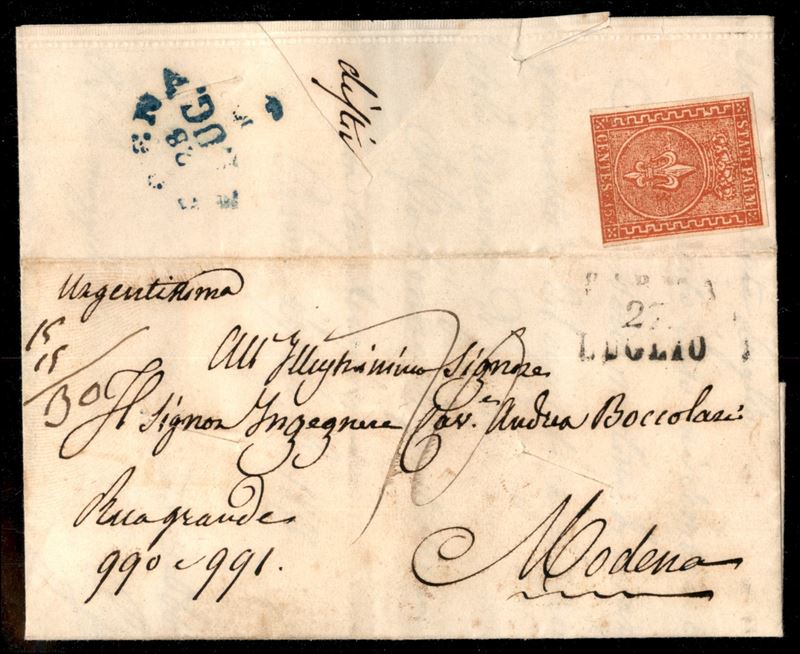 28
LUG.
STATI PARM.
CENTES. 15
PARMA
27
LUGLIO
Urgentissima
15
15
30
All' Illustrissimo Signore
Il Signor Ingegnere Cav.e Andrea Boccolari
Rua grande
990 e 991.
Modena